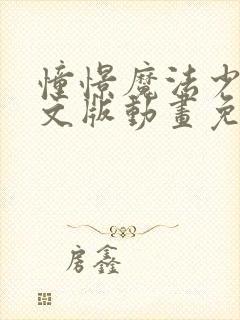 憧憬魔法少
文版動畫免
房鑫